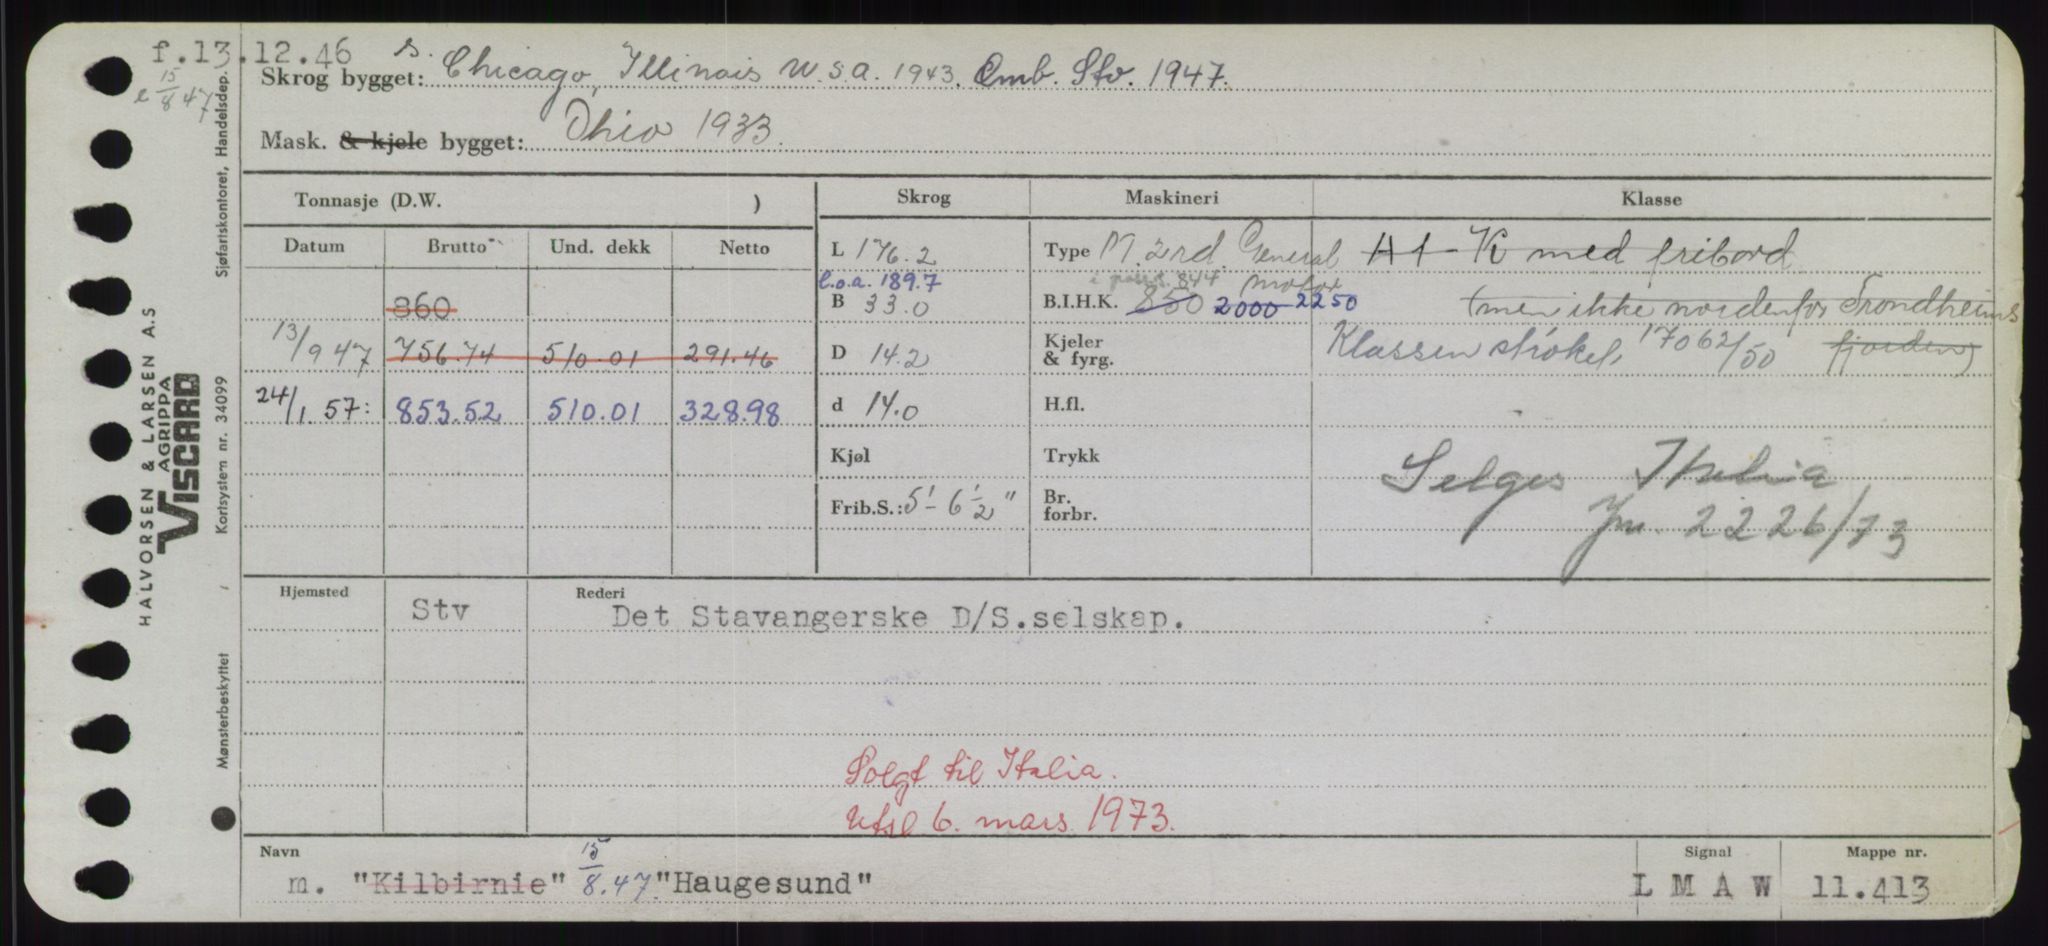 f.13.12.46
e 15/8 47
Skrog bygget: s. Chicago, Illinois U.S.A. 1943. Omb. Stv. 1947.
Mask. & kjele bygget: Ohio 1933.
Tonnasje (D.W. )
Skrog
Maskineri
Klasse
Datum
Brutto
Und. dekk
Netto
860
13/9 47 756.74 510.01 291.46
24/1. 57: 853.52 510.01 328.98
L 176.2
l.o.a. 189.7
B 33.0
D 14.2
d 14.0
Kjøl
Frib.S.: 5'- 6 1/2"
Type M. 2 rd. General
844 motor
B.I.H.K. 850 2000 2250
Kjeler
& fyrg.
H.fl.
Trykk
Br.
forbr.
A1-K med fribord
(men ikke nordenfor Trondheims
fjorden)
Klassen strøket, 17062/50
Selges Italia
jn. 2226/73
Hjemsted
Stv
Rederi
Det Stavangerske D/S.selskap.
Solgt til Italia.
Utsl 6. mars 1973.
Navn
m. "Kilbirnie" 15/8.47. "Haugesund"
Signal
L M A W
Mappe nr.
11.413
HALVORSEN & LARSEN A.S
AGRIPPA
VISCARD
Sjøfartskontoret, Handelsdep.
Kortsystem nr. 34099
Mønsterbeskyttet